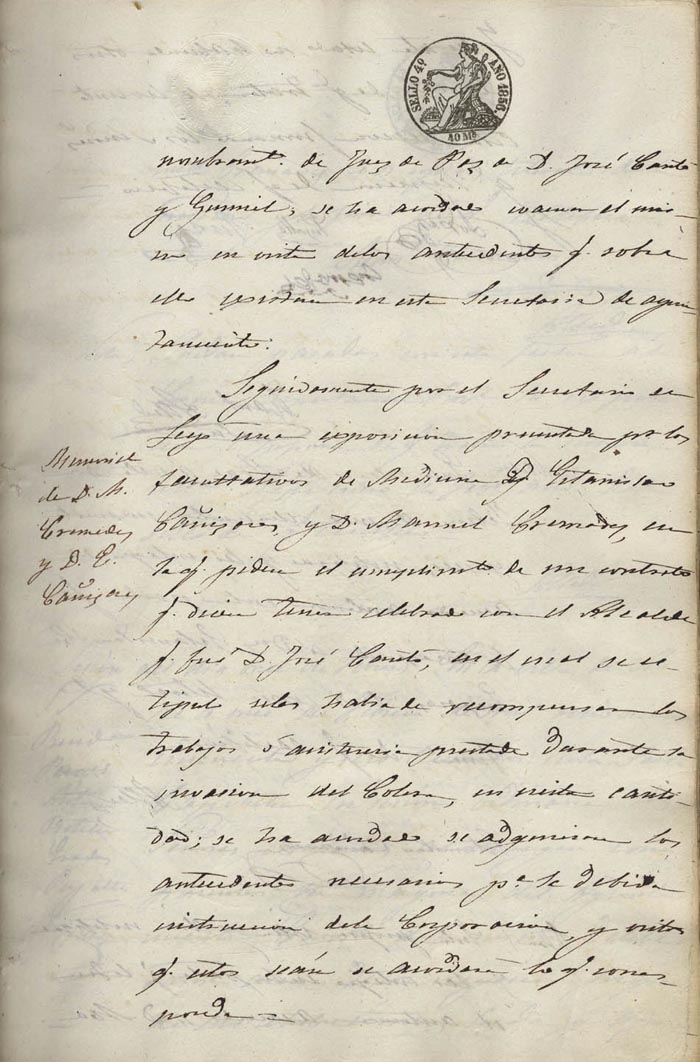 SELLO 4º AÑO 1856.
40 Ms
nombramt. de Juez de Paz de D. José Cantó
y Gumiel; se ha acordado evacuar el mis-
mo en vista delos antecedentes q. sobre
ello existan en esta Secretaria de ayun-
tamiento.
Seguidamente por el Secretario se
leyó una exposicion presentada por los
facultativos de Medicina D. Estanislao
Cañizares, y D. Manuel Cremades, en
la q. piden el cumplimto de un contrato
q. dicen tener celebrado con el Alcalde
q. fué D. José Cantó, en el cual se es-
tipuló seles habia de recompensar los
trabajos ó asistencia prestada durante la
invasion del Colera, en cierta canti-
dad; se ha acordado se adquieran los
antecedentes necesarios pa. la debida
instruccion dela Corporacion, y vistos
q. estos seán se acordará lo q. corres-
ponda =
Memorial
de D. M.
Cremades
y D. E.
Cañizares